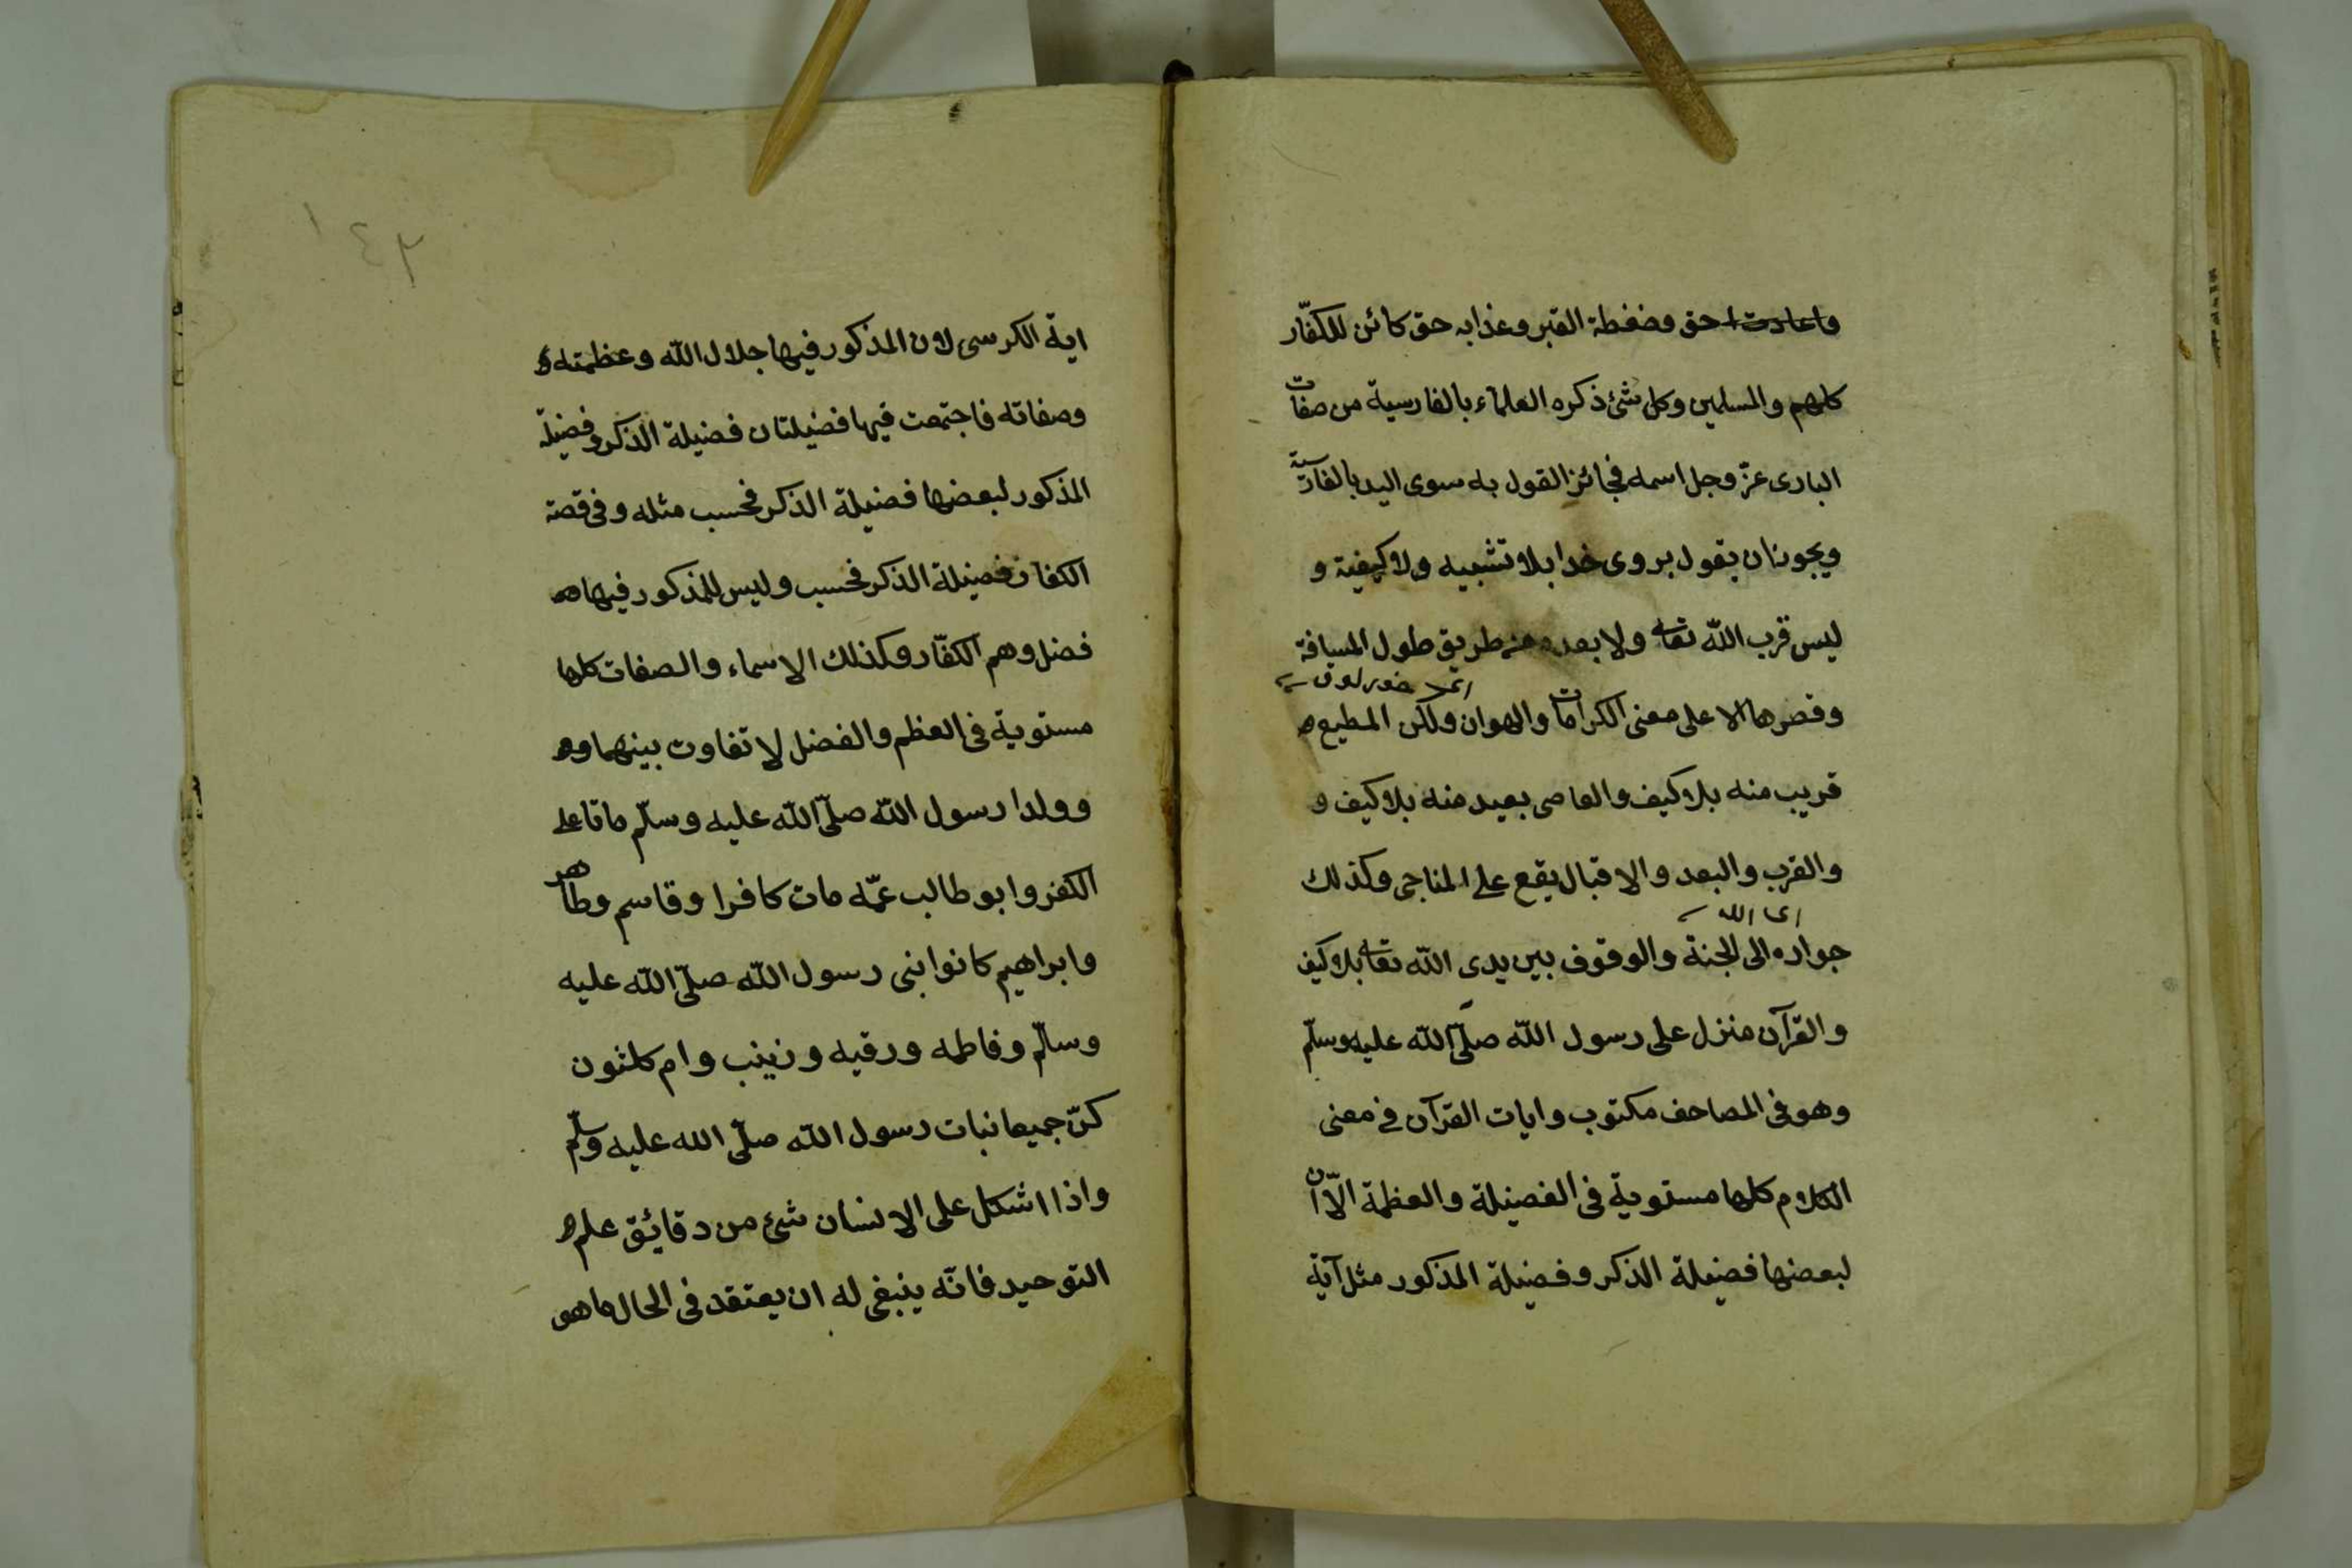 حق وضغطة القبر وعذابه حق كائن للكفّار
كلهم والمسلمين وكل شئ ذكره العلماء بالفارسية من صفات
البارى عزّ وجل اسمه فجائز القول به سوى اليد بالفارسية
ويجوز ان يقول بروى خدا بلا تشبيه ولا كيفية و
ليس قرب الله تعالى ولا بعده من طريق طول المسافة
وقصرها الا على معنى الكرامات والهوان ولكن المطيع
قريب منه بلا كيف والعاصى بعيد منه بلا كيف و
والقرب والبعد والاقبال يقع على المناجى وكذلك
اى الله
جواره الى الجنة والوقوف بين يدى الله تعالى بلا كيف
والقرآن منزل على رسول الله صلّى الله عليه وسلّم
وهو فى المصاحف مكتوب وايات القرآن فى معنى
الكلام كلها مستوية فى الفضيلة والعظمة الّا ان
لبعضها فضيلة الذكر وفضيلة المذكور مثل آية
١٤٣
اية الكرسى لان المذكور فيها جلال الله وعظمته و
وصفاته فاجتمعت فيها فضيلتان فضيلة الذكر وفضيلة
المذكور لبعضها فضيلة الذكر فحسب مثله وفى قصة
الكفار فضيلة الذكر فحسب وليس للمذكور فيها
فضل وهم الكفّار وكذلك الاسماء والصفات كلها
مستوية فى العظم والفضل لا تفاوت بينهما
وولدا رسول الله صلّى الله عليه وسلّم ماتا على
الكفر وابو طالب عمّه مات كافرا وقاسم وطاهر
وابراهيم كانوا بنى رسول الله صلّى الله عليه
وسلّم وفاطمه ورقيه وزينب وام كلثون
كنّ جميعا نبات رسول الله صلّى الله عليه وسلّم
واذا اشكل على الانسان شئ من دقائق علم
التوحيد فانّه ينبغى له ان يعتقد فى الحال ما هو